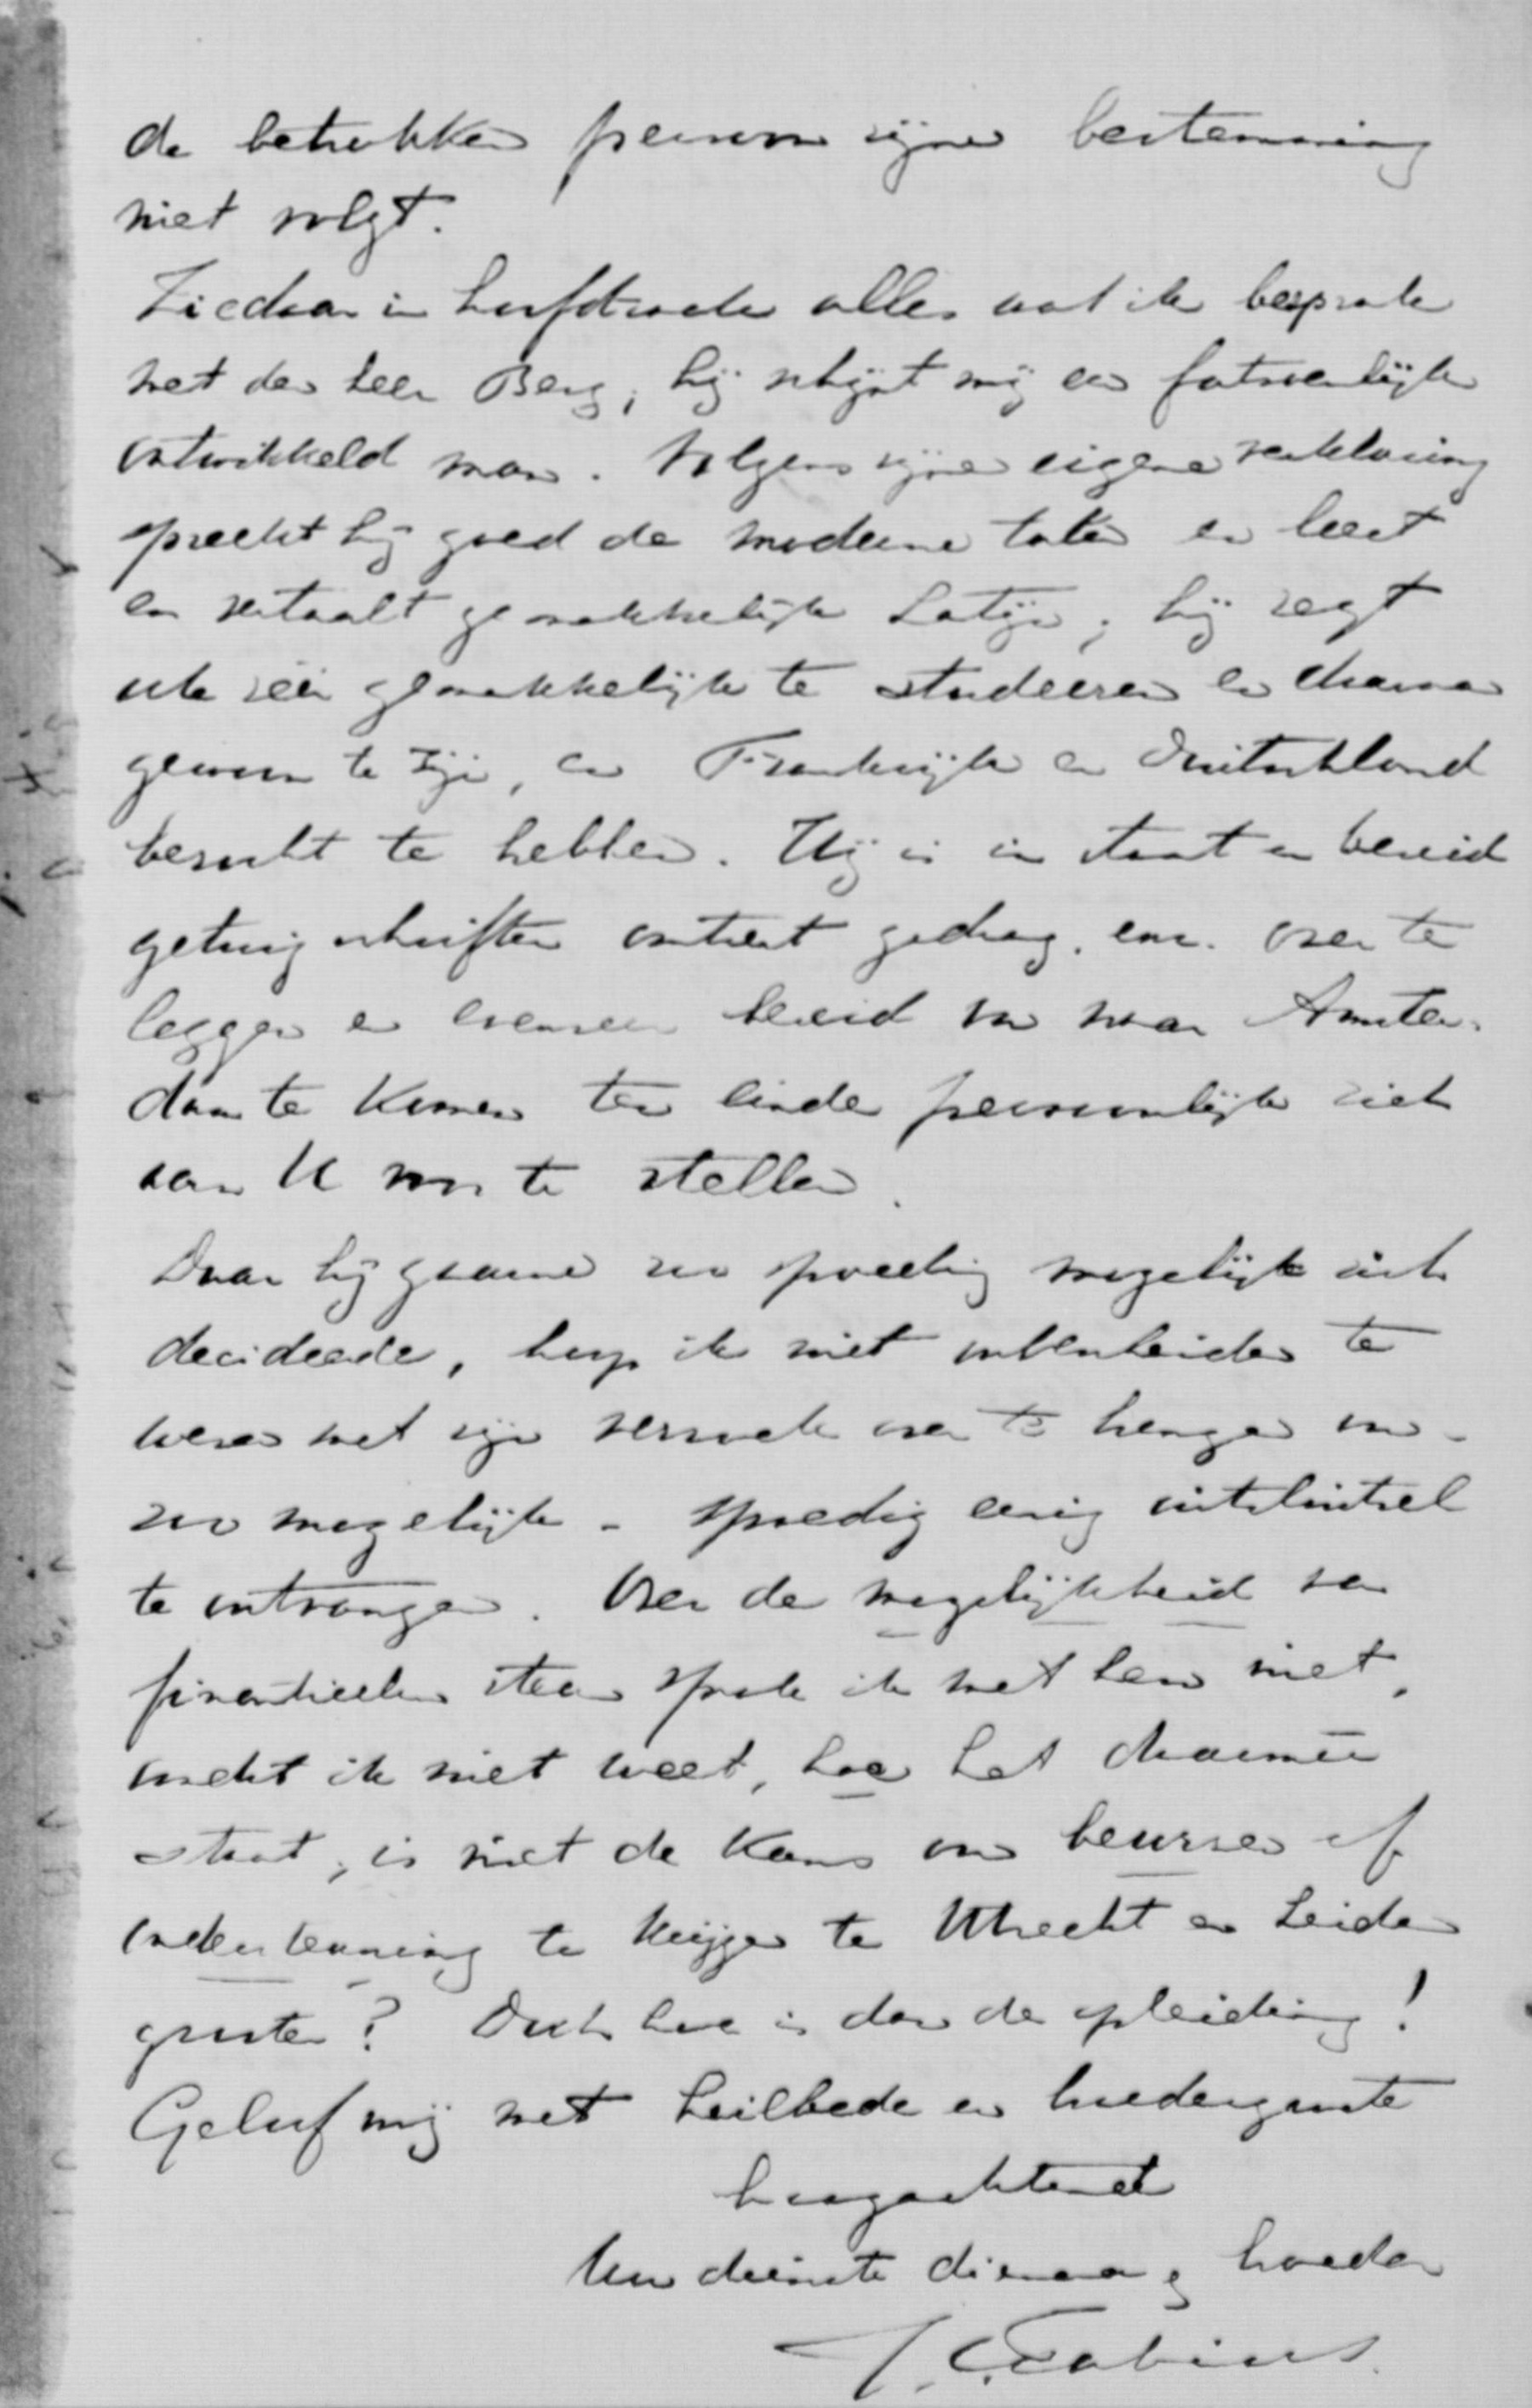 de betrokken persoon zijne bestemming
niet volgt.
Ziedaar in hoofdzaak alles wat ik besprak
met den heer Berg; hij schijnt mij een fatsoenlijk
ontwikkeld man. Volgens zijne eigene verklaring
spreekt hij goed de moderne talen en leest
en vertaalt gemakkelijk Latijn; hij zegt
ook zéér gemakkelijk te studeeren en daaraan
gewoon te zijn, en Frankrijk en Duitschland
bezocht te hebben. Hij is in staat en bereid
getuigschriften omtrent gedrag. enz. over te
leggen en evenzeer bereid om naar Amster-
dam te komen ten einde persoonlijk zich
aan U voor te stellen.
Daar hij gaarne zoo spoedig mogelijk zich
decideerde, hoop ik niet onbescheiden te
wezen met zijn verzoek over te brengen om -
zoo mogelijk - spoedig eenig uitsluitsel
te ontvangen. Over de mogelijkheid van
financieelen steun sprak ik met hem niet,
omdat ik niet weet, hoe het daarmeê
staat; is niet de kans om beurzen of
ondersteuning te krijgen te Utrecht en Leiden
grooter? Doch hoe is dan de opleiding!
Geloof mij met heilbede en broedergroete
hoogachtend
Uw dienstw dienaar en broeder
J. C. Fabius.